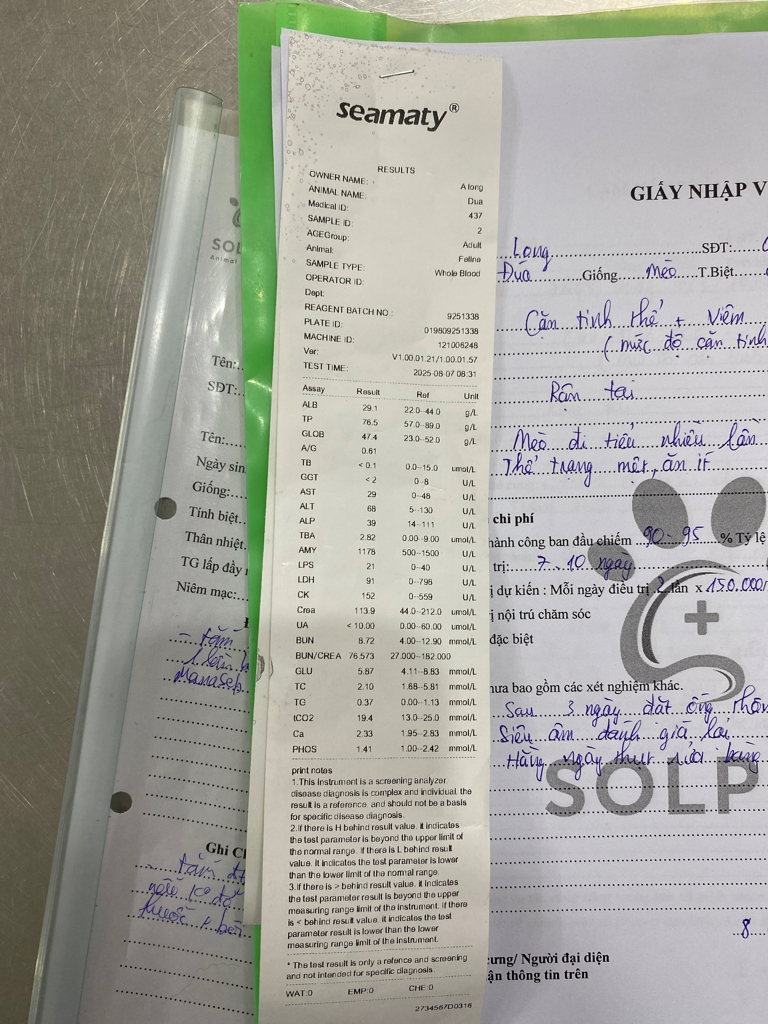 seamaty®
RESULTS
OWNER NAME: A long
ANIMAL NAME: Dua
Medical ID: 437
SAMPLE ID: 2
AGEGroup: Adult
Animal: Feline
SAMPLE TYPE: Whole Blood
OPERATOR ID:
Dept:
REAGENT BATCH NO.: 9251338
PLATE ID: 019809251338
MACHINE ID: 121006248
Ver: V1.00.01.21/1.00.01.57
TEST TIME: 2025-08-07 08:31
Assay Result Ref Unit
ALB 29.1 22.0--44.0 g/L
TP 76.5 57.0--89.0 g/L
GLOB 47.4 23.0--52.0 g/L
A/G 0.61
TB <0.1 0.0--15.0 umol/L
GGT <2 0--8 U/L
AST 29 0--48 U/L
ALT 68 5--130 U/L
ALP 39 14--111 U/L
TBA 2.82 0.00--9.00 umol/L
AMY 1178 500--1500 U/L
LPS 21 0--40 U/L
LDH 91 0--798 U/L
CK 152 0--559 U/L
Crea 113.9 44.0--212.0 umol/L
UA <10.00 0.00--60.00 umol/L
BUN 8.72 4.00--12.90 mmol/L
BUN/CREA 76.573 27.000--182.000
GLU 5.87 4.11--8.83 mmol/L
TC 2.10 1.68--5.81 mmol/L
TG 0.37 0.00--1.13 mmol/L
tCO2 19.4 13.0--25.0 mmol/L
Ca 2.33 1.95--2.83 mmol/L
PHOS 1.41 1.00--2.42 mmol/L
print notes
1.This instrument is a screening analyzer,
disease diagnosis is complex and individual, the
result is a reference, and should not be a basis
for specific disease diagnosis.
2.if there is H behind result value, it indicates
the test parameter is beyond the upper limit of
the normal range. if there is L behind result
value, it indicates the test parameter is lower
than the lower limit of the normal range.
3.if there is > behind result value, it indicates
the test parameter result is beyond the upper
measuring range limit of the instrument. if there
is < behind result value, it indicates the test
parameter result is lower than the lower
measuring range limit of the instrument.
* The test result is only a refence and screening
and not intended for specific diagnosis.
WAT:0 EMP:0 CHE:0
2734567D0316
GIẤY NHẬP V
Long SĐT:
Dứa Giống Mèo T.Biệt
Cặn tinh thể + Viêm
( mức độ cặn tinh
Rận tai
Mèo đi tiểu nhiều lần
Thể trạng mệt, ăn ít
chi phí
hành công ban đầu chiếm 90-95 % Tỷ lệ
trị: 7-10 ngày
dự kiến : Mỗi ngày điều trị 2 lần x 150.000
nội trú chăm sóc
đặc biệt
hưa bao gồm các xét nghiệm khác.
Sau 3 ngày đặt ống thông
Siêu âm đánh giá lại
Hằng ngày thụt rửa bàng
SOLP
8
ưng/ Người đại diện
ận thông tin trên
SOL
Animal
Tên:
SĐT:
Tên:
Ngày sin
Giống:
Tính biệt
Thân nhiệt
TG lấp đầy
Niêm mạc:
Ghi Ch